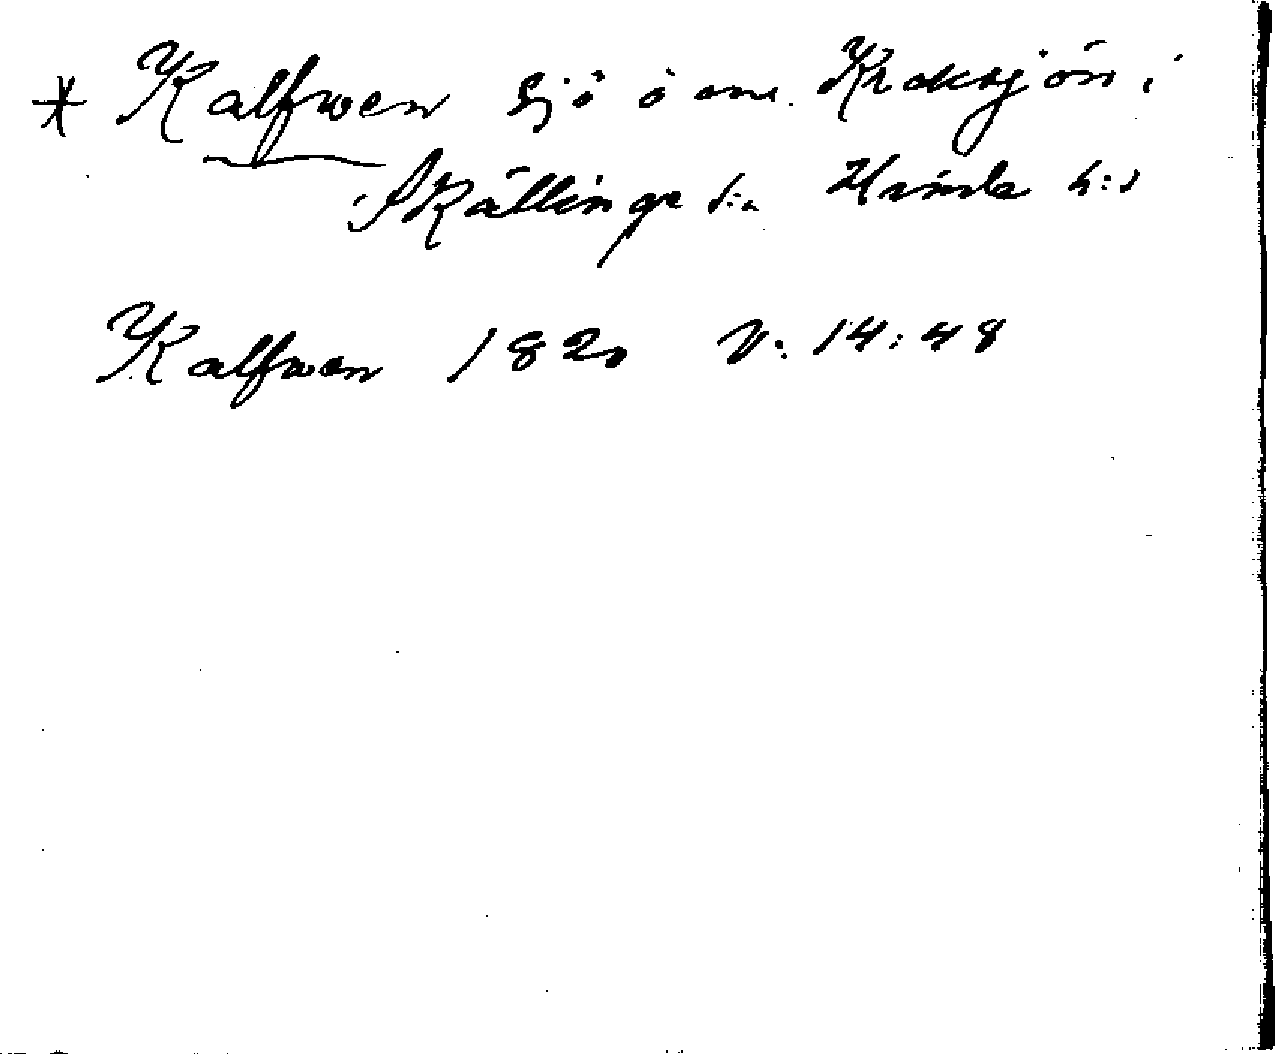 * Kalfwen sjö ö om Kroksjön i
Skällinge s:n Himle h:d
Kalfwen 1820 V. 14:48